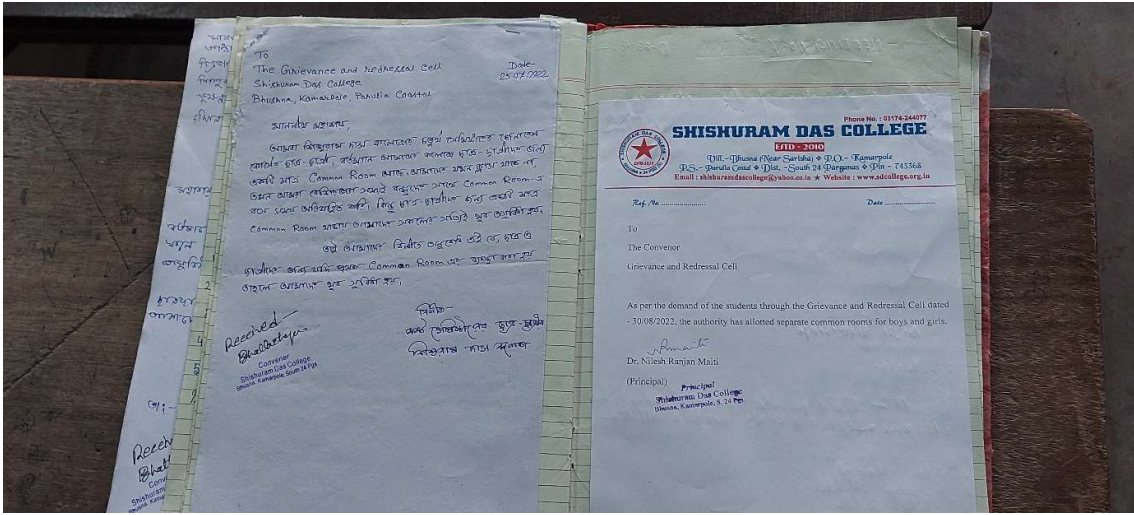 To
The Grievance and Redressal Cell
Shishuram Das College
Bhushna, Kamarpole, Parulia Coastal
Date-
25.07.2022
মাননীয় মহাশয়,
আমরা শিশুরাম দাস কলেজের চতুর্থ সেমিস্টারের জেনারেল
কোর্সের ছাত্র-ছাত্রী, বর্তমানে আমাদের কলেজে ছাত্র-ছাত্রীদের জন্য
একটি মাত্র Common Room আছে, আমাদের যখন ক্লাস থাকে না,
তখন আমরা বেশিরভাগ সময়ই বন্ধুদের সাথে Common Room-এ
বসে সময় অতিবাহিত করি। কিন্তু ছাত্র-ছাত্রীদের জন্য একটি মাত্র
Common Room থাকায় আমাদের সকলের সত্যিই খুব অসুবিধা হয়.
তাই আমাদের বিনীত অনুরোধ এই যে, ছাত্র ও
ছাত্রীদের জন্য যদি পৃথক Common Room এর ব্যবস্থা করা হয়
তাহলে আমাদের খুব সুবিধা হয়।
বিনীত-
সেমিস্টারের ছাত্র-ছাত্রী
শিশুরাম দাস কলেজ
Received
Convenor
Shishuram Das College
Bhusna, Kamarpole, South 24 Pgs
Phone No. : 03174-244077
SHISHURAM DAS COLLEGE
ESTD - 2010
Vill.-Bhusna (Near Sarisha) ❖ P.O.- Kamarpole
P.S.- Parulia Costal ❖ Dist.-South 24 Parganas ❖ Pin - 743368
Email : shishuramdascollege@yahoo.co.in ★ Website : www.sdcollege.org.in
Ref. No. ........................
Date ........................
To
The Convenor
Grievance and Redressal Cell
As per the demand of the students through the Grievance and Redressal Cell dated
- 30/08/2022, the authority has allotted separate common rooms for boys and girls.
Dr. Nilesh Ranjan Maiti
(Principal)
Principal
Shishuram Das College
Bhusna, Kamarpole, S. 24 Pgs.